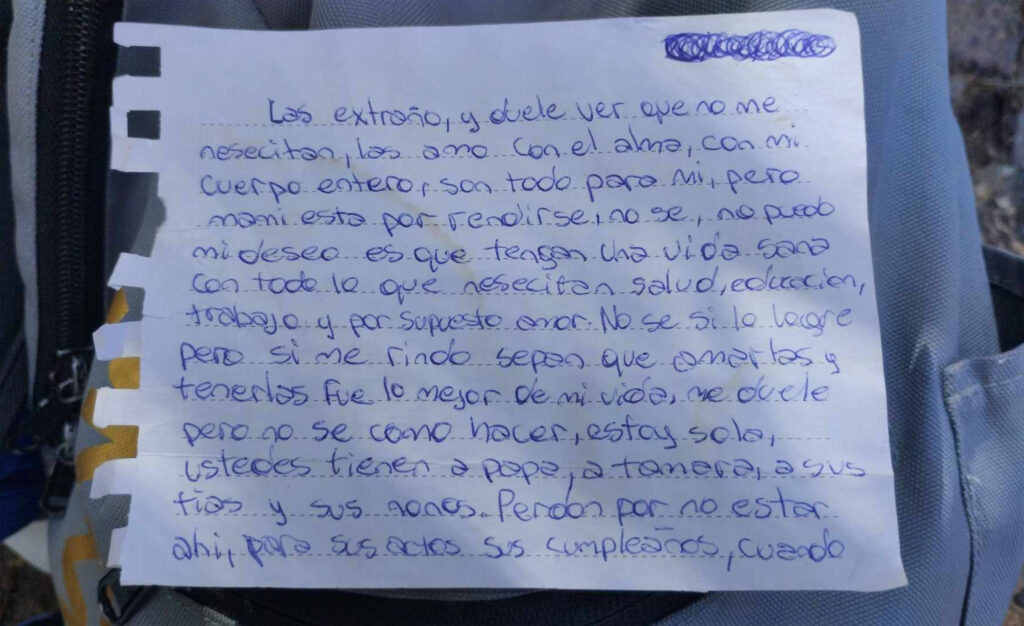 Las extraño, y duele ver que no me
nesecitan, las amo con el alma, con mi
cuerpo entero, son todo para mi, pero
mami esta por rendirse, no se, no puedo
mi deseo es que tengan una vida sana
con todo lo que nesecitan salud, educacion,
trabajo y por supuesto amor. No se si lo logre
pero si me rindo sepan que amarlas y
tenerlas fue lo mejor de mi vida, me duele
pero no se como hacer, estoy sola,
ustedes tienen a papa, a tamara, a sus
tias y sus nonos. Perdon por no estar
ahi, para sus actos sus cumpleaños, cuando